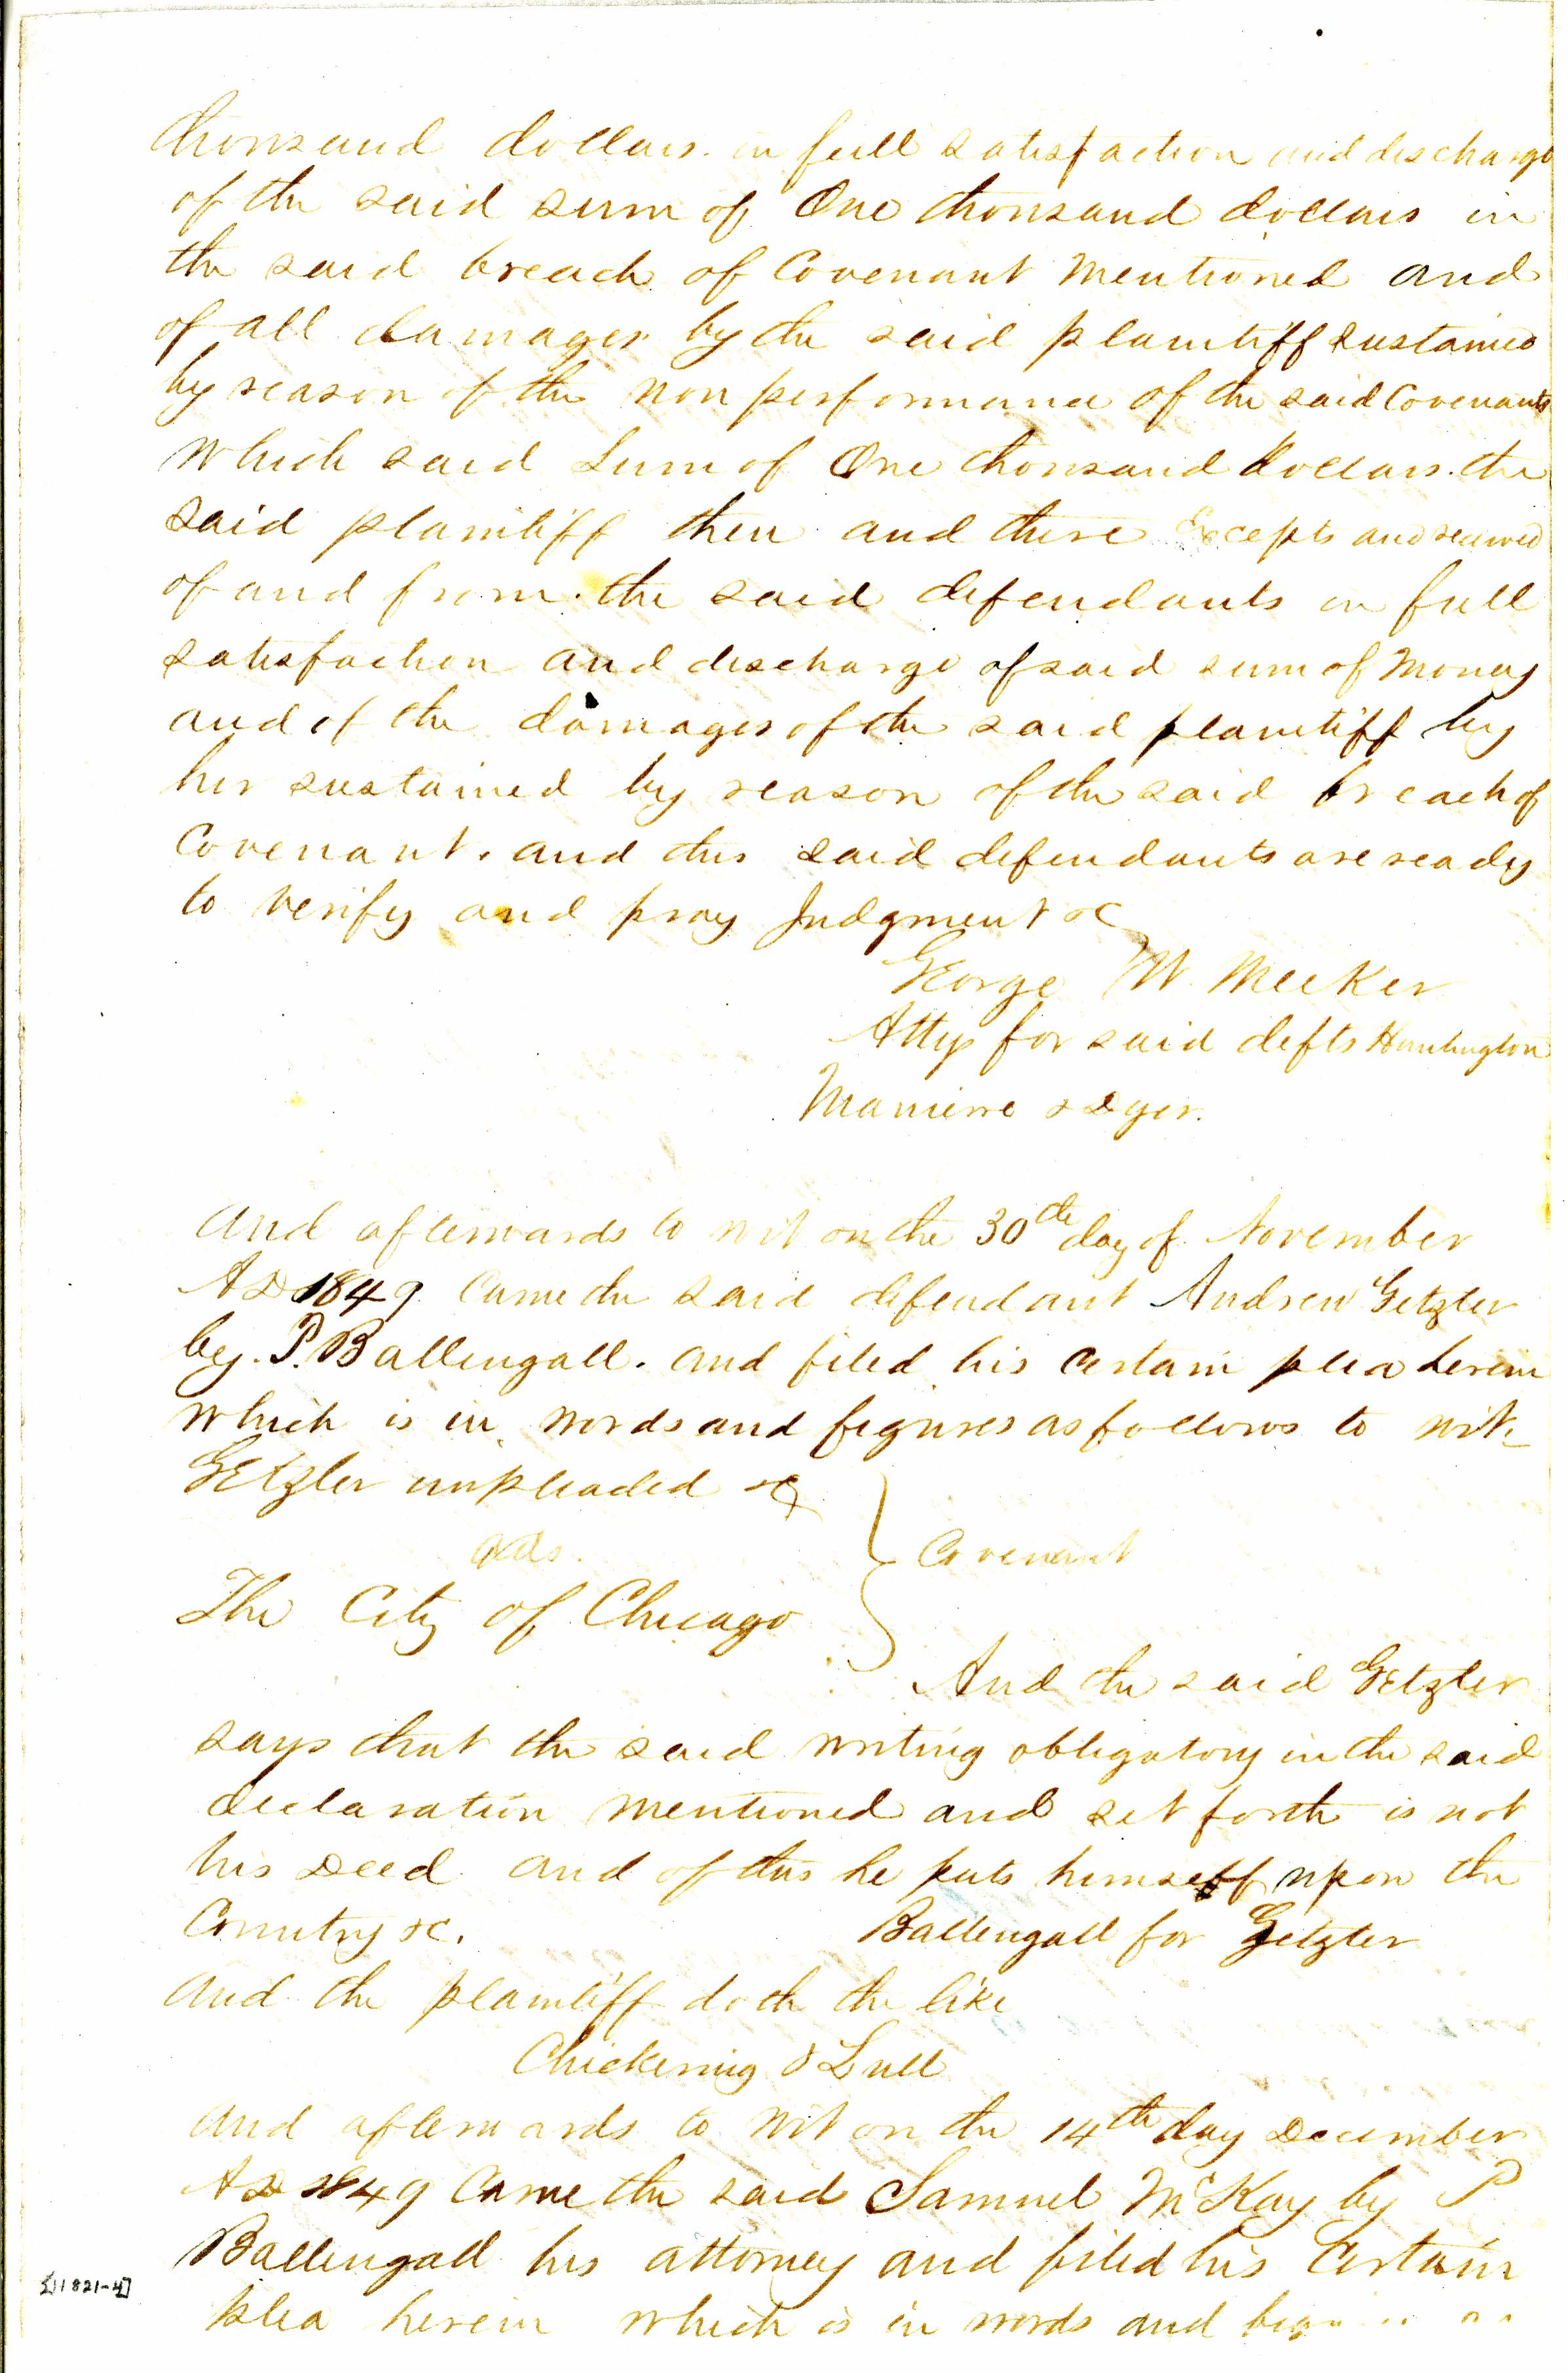 thousand dollars. in full satisfaction and discharge
of the said sum of One thousand dollars in
the said breach of Covenant mentioned and
of all damages by the said plaintiff sustained
by reason of the non performance of the said Covenants
which said Sum of One thousand dollars. the
said plaintiff then and there Excepts and received
of and from the said defendants in full
satisfaction and discharge of said sum of Money
and of the damages of the said plaintiff by
her sustained by reason of the said breach of
Covenant. and this said defendants are ready
to verify and pray Judgment &c
George W. Meeker
Atty for said defts Huntington
Manierre & Dyer.
And afterwards to wit on the 30th day of November
AD 1849 Came the said defendant Andrew Getzler
by. P. Ballengall. and filed his certain plea herein
which is in words and figures as follows to wit.
Getzler impleaded &c
ads.
} Covenant
The City of Chicago
And the said Getzler
says that the said writing obligatory in the said
declaration mentioned and set forth is not
his Deed and of this he puts himself upon the
Country &c. Ballengall for Getzler
And the plaintiff doth the like
Chickering & Lull
And afterwards to wit on the 14th day December
AD 1849 Came the said Samuel McKay by P
Ballengall his attorney and filed his Certain
plea herein which is in words and
[11821-4]